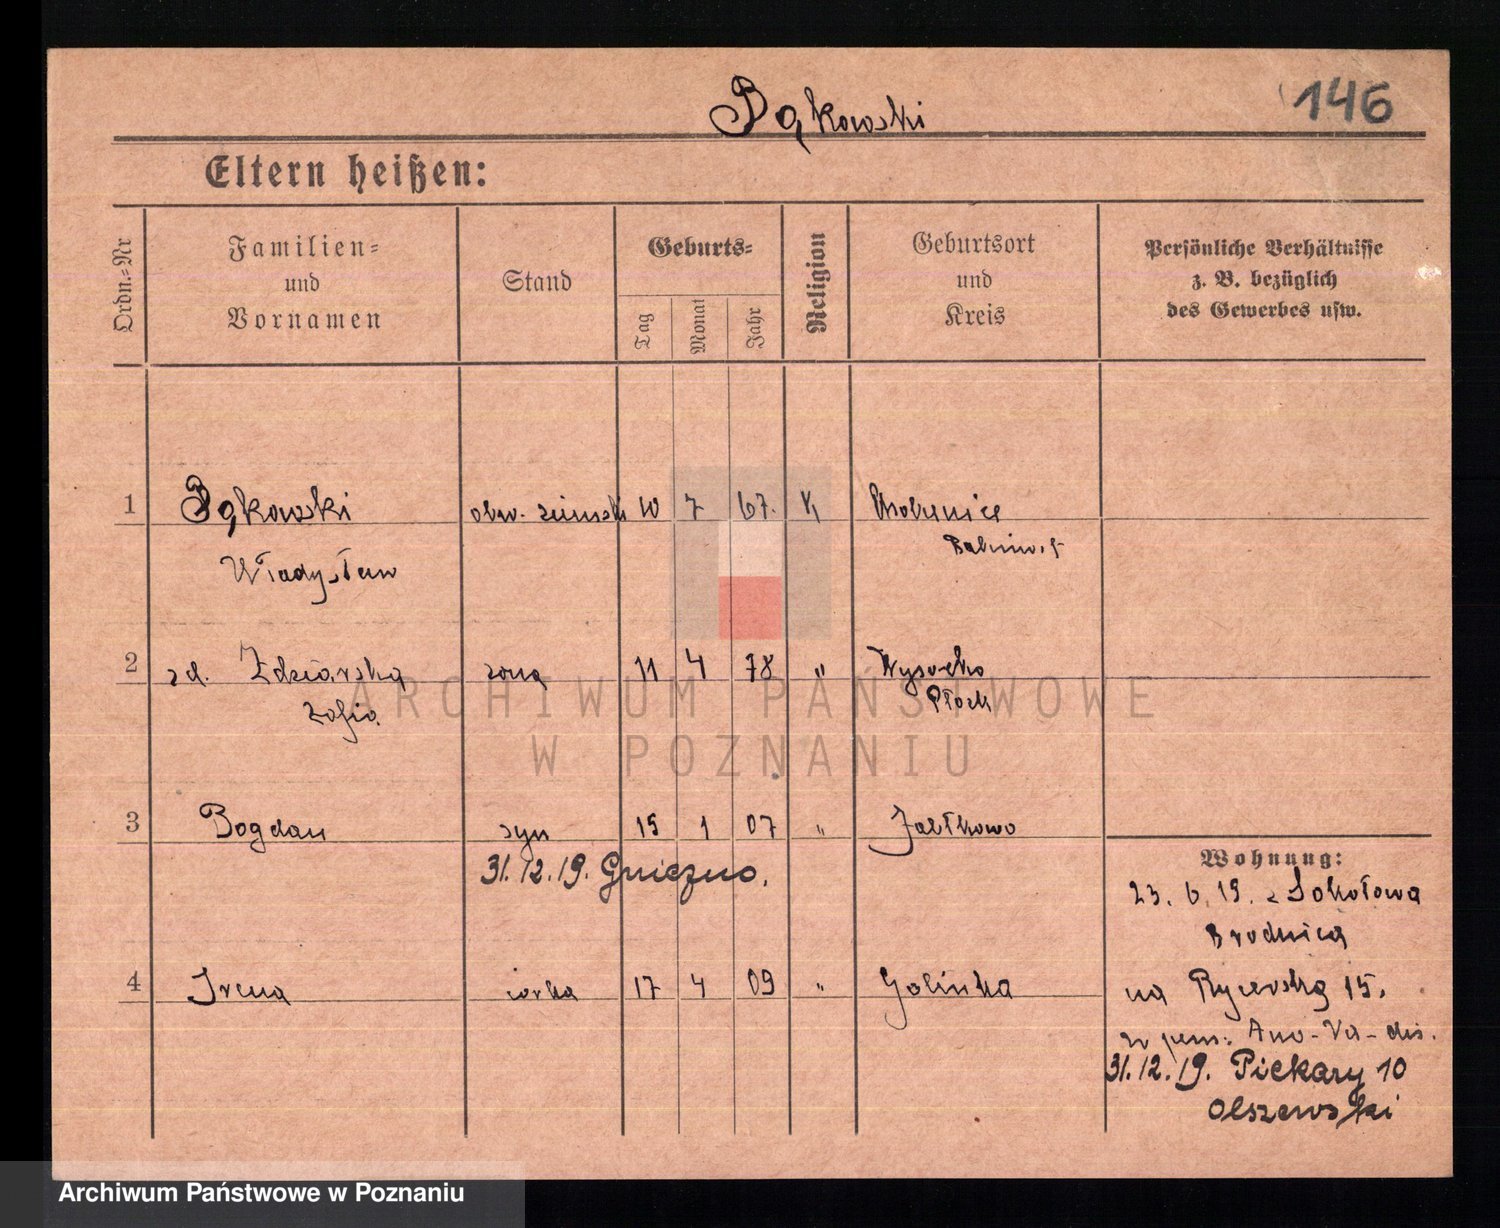 Bąkowski
146
Eltern heißen:
Ordn.=Nr
Familien=
und
Vornamen
Stand
Geburts=
Tag
Monat
Jahr
Religion
Geburtsort
und
Kreis
Persönliche Verhältnisse
z. B. bezüglich
des Gewerbes usw.
1 Bąkowski obyw. ziemski 10 7 67. K
Władysław
2 zd. Zdziarska żona 11 4 78 " Wysocko
Zofia Płock
3 Bogdan syn 15 1 07 " Jabłkowo
31.12.19. Gniezno.
Wohnung:
23. 6. 19. z Sokołowa
Brodnica
4 Irena córka 17 4 09 " Golinka
na Rycerską 15.
w pens:
31.12.19. Piekary 10
Olszewski
ARCHIWUM PAŃSTWOWE
W POZNANIU
Archiwum Państwowe w Poznaniu